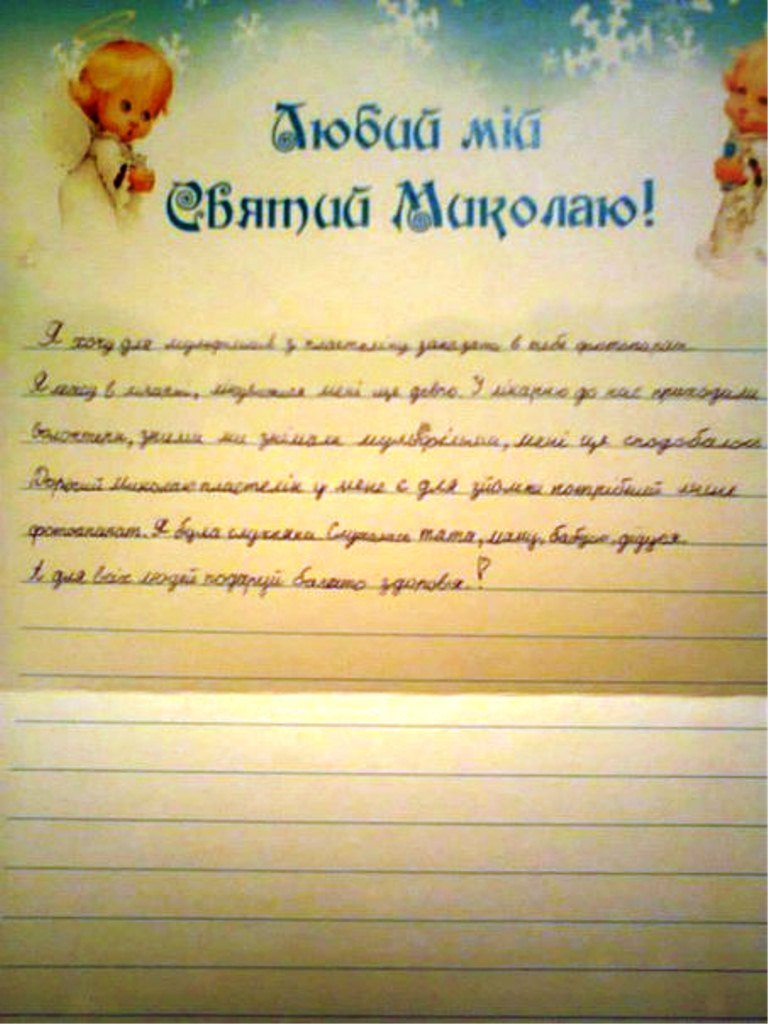 Любий мій
Святий Миколаю!
Я хочу для мультфільмів з пластеліну заказати в тебе фотоапарат.
Я лежу в лікарні, мені ще довго. У лікарню до нас приходили
волонтери, зними ми знімали мультфільми, мені це сподобалося
Дорогий Миколаю пластелін у мене є для зйомки потрібний лише
фотоапарат. Я була слухняна. Слухалась тата, маму, бабцю, дідуся.
І для всіх людей подаруй багато здоровя!